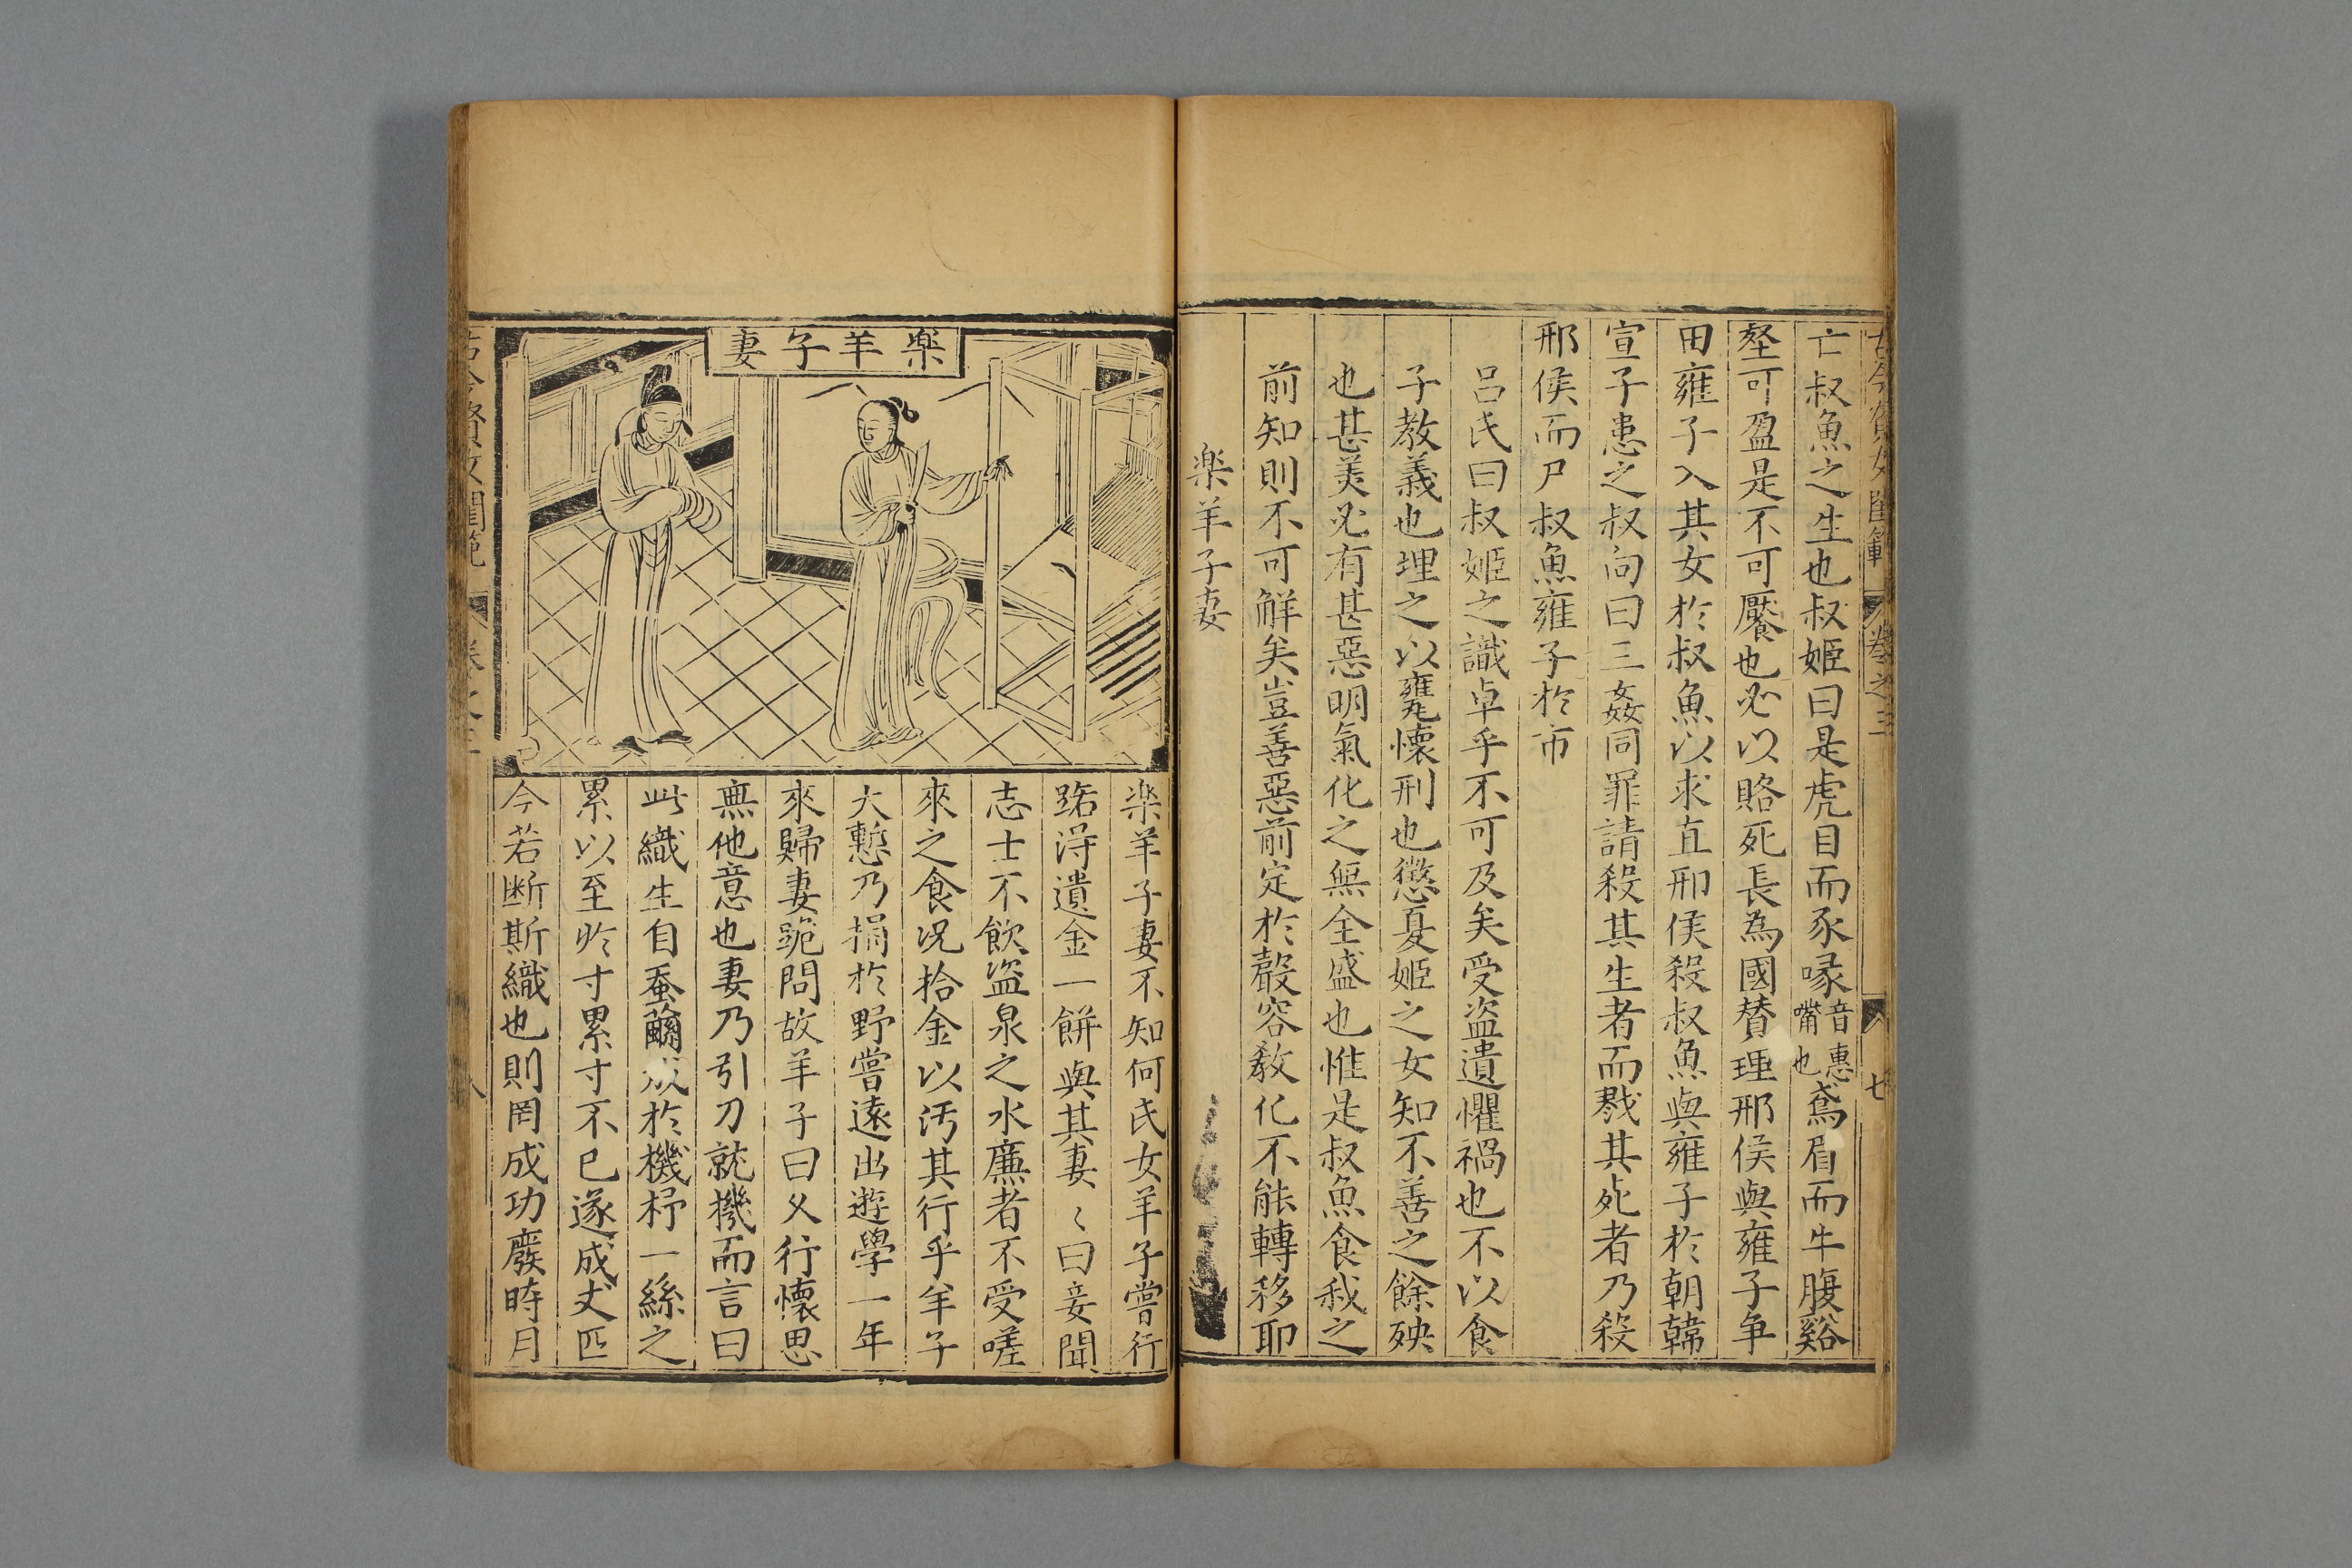 古今賢女閨範 卷之三 七
亡叔魚之生也叔姬曰是虎目而豕喙音惠嘴也鳶眉而牛腹谿
壑可盈是不可饜也必以賂死長為國賛理邢侯與雍子争
田雍子入其女於叔魚以求直邢侯殺叔魚與雍子於朝韓
宣子患之叔向曰三姦同罪請殺其生者而戮其死者乃殺
邢侯而尸叔魚雍子於市
吕氏曰叔姬之識卓乎不可及矣受盗遺懼禍也不以食
子教義也埋之以甕懷刑也懲夏姬之女知不善之餘殃
也甚美必有甚惡明氣化之無全盛也惟是叔魚食我之
前知則不可觧矣豈善惡前定於聲容敎化不能轉移耶
楽羊子妻
楽羊子妻
楽羊子妻不知何氏女羊子嘗行
路得遺金一餅與其妻〻曰妾聞
志士不飲盗泉之水廉者不受嗟
來之食况拾金以汚其行乎羊子
大慙乃捐於野嘗遠出遊學一年
來歸妻跪問故羊子曰久行懷思
無他意也妻乃引刀就機而言曰
此織生自蚕繭成於機杼一絲之
累以至於寸累寸不已遂成丈匹
今若断斯織也則罔成功廢時月
古今賢女閨範 卷之三 八